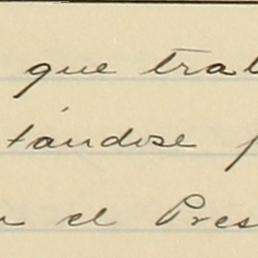 que trat
tándose
el Pres